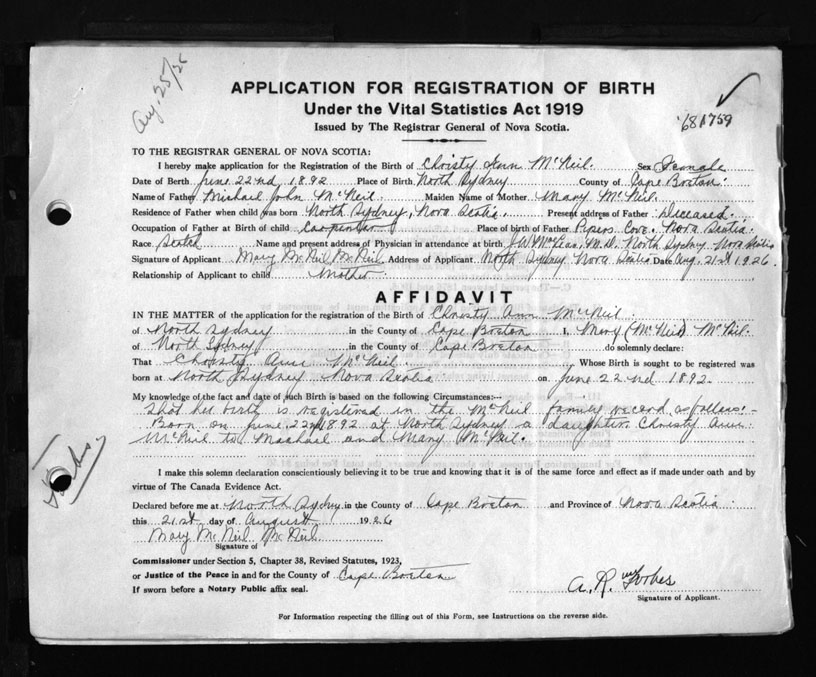 Aug. 25/26
APPLICATION FOR REGISTRATION OF BIRTH
Under the Vital Statistics Act 1919
Issued by The Registrar General of Nova Scotia.
'68 1759
TO THE REGISTRAR GENERAL OF NOVA SCOTIA:
I hereby make application for the Registration of the Birth of Christy Ann McNeil. Sex Female
Date of Birth June 22nd 1892 Place of Birth North Sydney County of Cape Breton.
Name of Father Michael John McNeil. Maiden Name of Mother Mary McNeil.
Residence of Father when child was born North Sydney, Nova Scotia. Present address of Father Deceased.
Occupation of Father at Birth of child Carpenter Place of birth of Father Pipers Cove. Nova Scotia.
Race Scotch Name and present address of Physician in attendance at birth J.W. McLean, M.D. North Sydney Nova Scotia
Signature of Applicant Mary McNeil McNeil Address of Applicant North Sydney Nova Scotia Date Aug. 21st 1926.
Relationship of Applicant to child Mother
AFFIDAVIT
IN THE MATTER of the application for the registration of the Birth of Christy Ann McNeil
of North Sydney in the County of Cape Breton I, Mary (McNeil) McNeil.
of North Sydney in the County of Cape Breton do solemnly declare:
That Christy Ann McNeil Whose Birth is sought to be registered was
born at North Sydney Nova Scotia on June 22nd 1892
My knowledge of the fact and date of such Birth is based on the following Circumstances:—
That her birth is registered in the McNeil family record as follows:-
Born on June 22nd 1892 at North Sydney a daughter Christy Ann
McNeil to Machael and Mary McNeil.
I make this solemn declaration conscientiously believing it to be true and knowing that it is of the same force and effect as if made under oath and by
virtue of The Canada Evidence Act.
Forbes
Declared before me at North Sydney in the County of Cape Breton and Province of Nova Scotia
this 21st day of August 1926
Mary McNeil McNeil
Signature of
Commissioner under Section 5, Chapter 38, Revised Statutes, 1923,
or Justice of the Peace in and for the County of Cape Breton
If sworn before a Notary Public affix seal.
A. R. Forbes
Signature of Applicant.
For Information respecting the filling out of this Form, see Instructions on the reverse side.